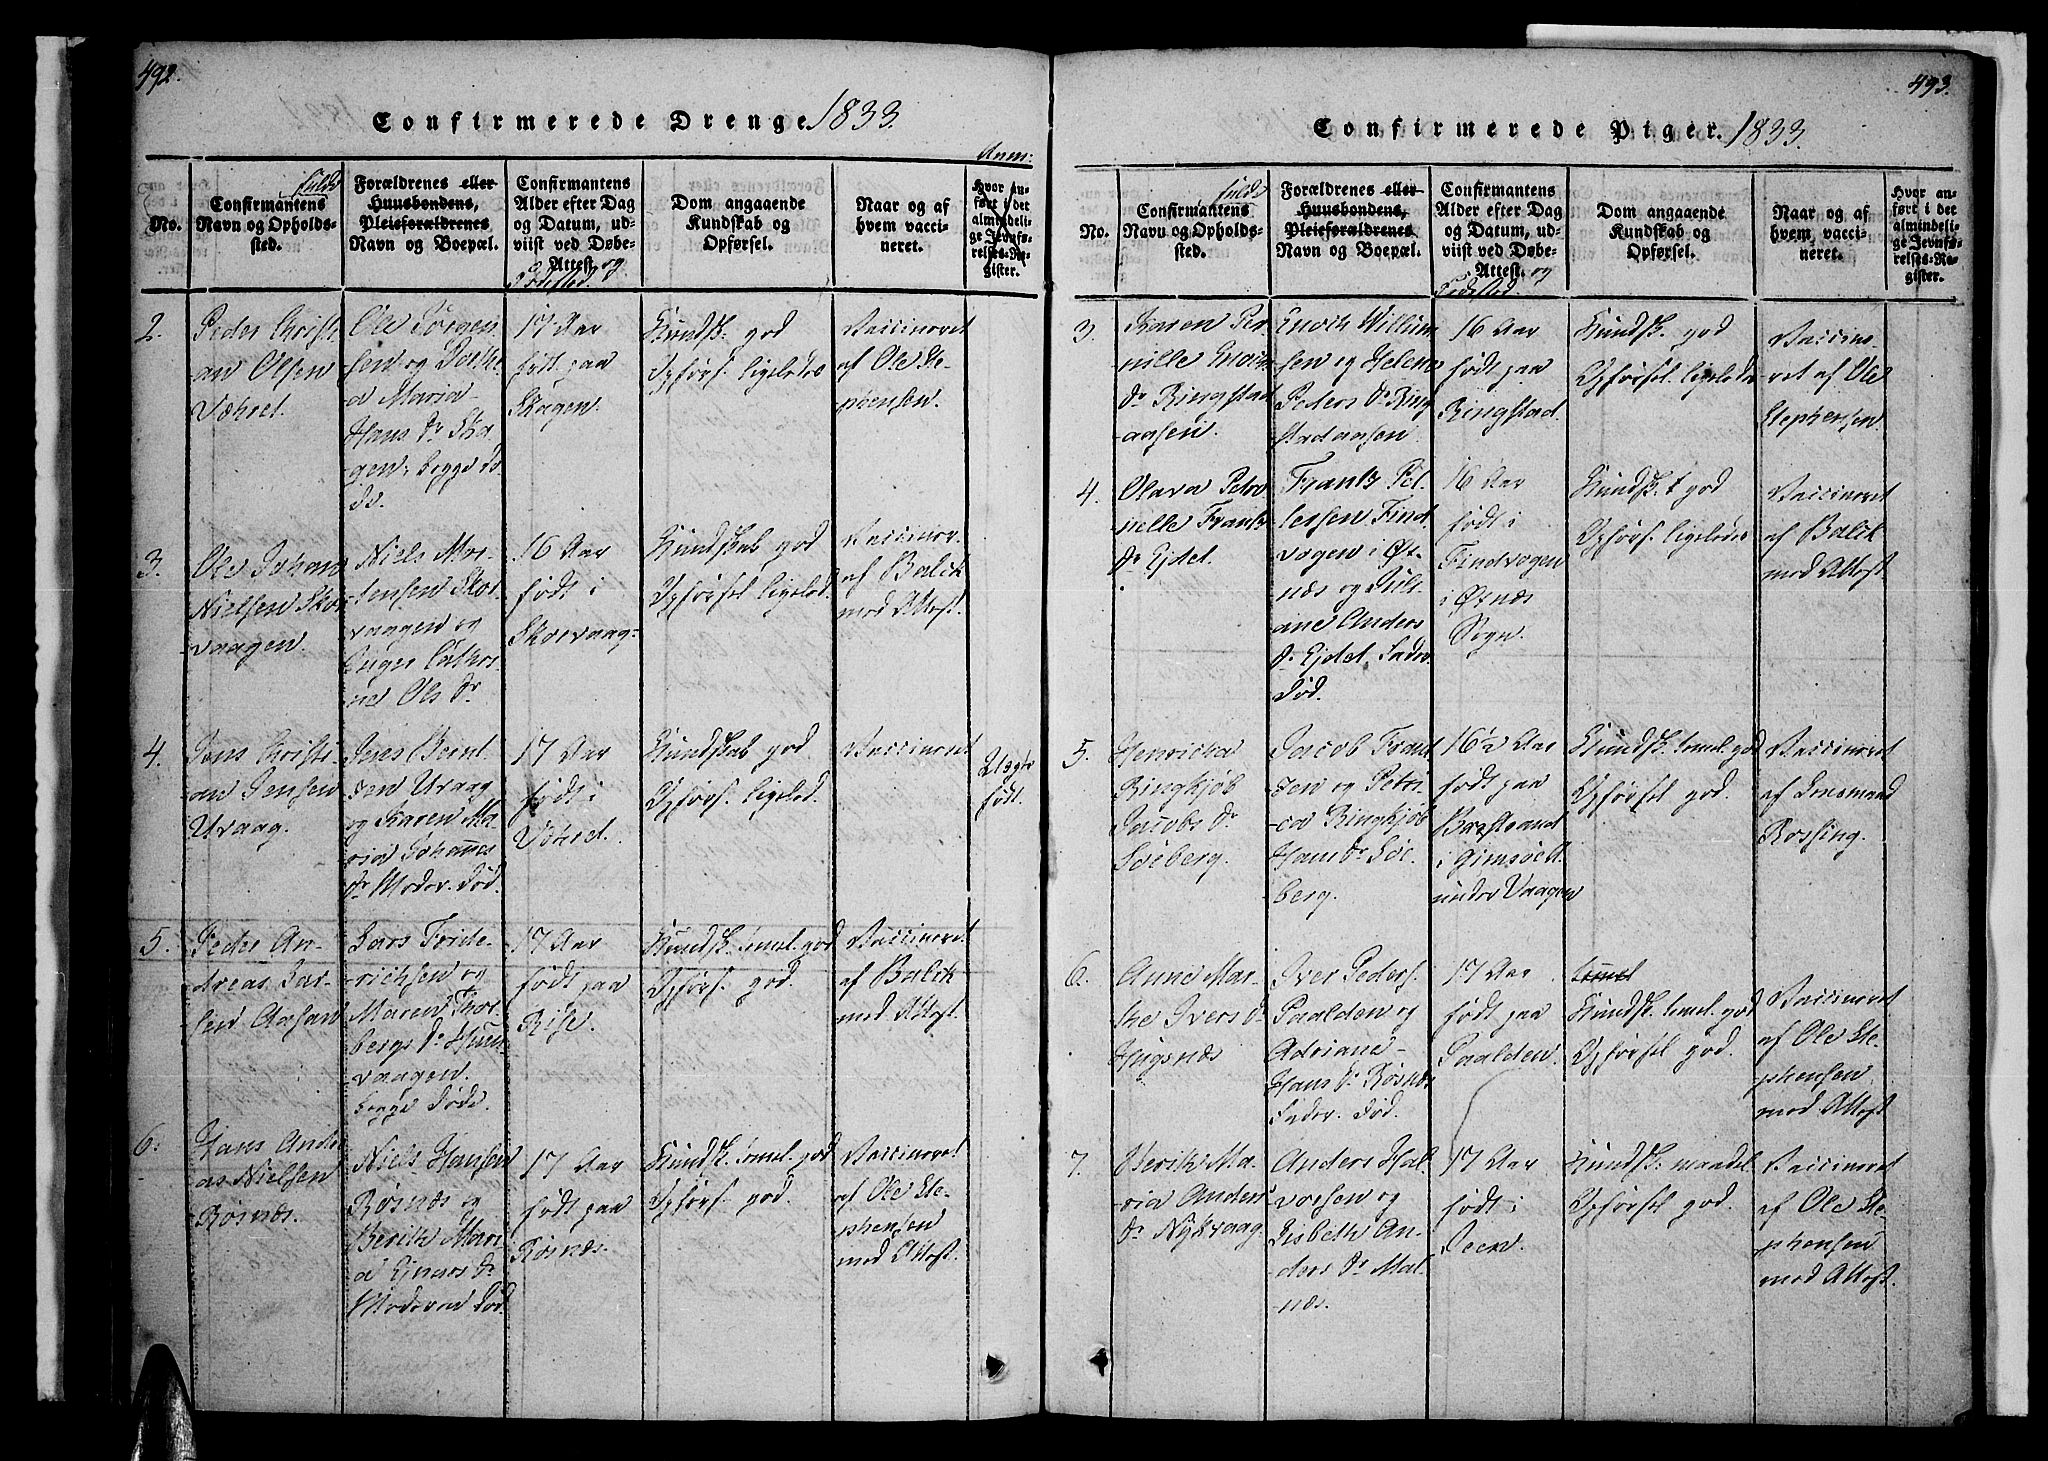 492.
Confirmerede Drenge 1833.
Anm:
No.
fulde
Confirmantens
Navn og Opholds-
sted.
Forældrenes eller
Huusbondens,
Pleieforældrenes
Navn og Boepæl.
Confirmantens
Alder efter Dag
og Datum, ud-
viist ved Døbe-
Attest. og
Fødested.
Dom angaaende
Kundskab og
Opførsel.
Naar og af
hvem vacci-
neret.
Hvor an-
ført i det
almindeli-
ge Jevnfø-
relses-Re-
gister.
2.
Peder Christi-
an Olsen
Vohret.
Ole Jørgen
sen og Dorthe-
a Maria
Hans Dr Ska-
gen; begge dø-
de.
17 Aar
født paa
Skagen.
Kundsk. god
Opførs. ligeledes
Vaccineret
af Ole Ste-
phensen.
3.
Ole Johan
Nielsen Skor
vaagen.
Niels Mor-
tensen Skor-
vaagen og
Inger Cathri-
ne Ols Dr
16 Aar
født i
Skorvaag-
Kundskab god
Opførsel ligeled.
Vacciner.
af Balck
med Attest.
4.
Jens Christi-
an Jensen
Uvaag.
Jens Beint
sen Uvaag
og Karen Ma-
ria Johannes
Dr Moder. Død.
17 Aar
født i
Vohret.
Kundskab god
Opførs. ligeled.
Vaccineret
Uægte
født.
5.
Peder An-
dreas Lar-
sen Aasan
Lars Fride-
richsen og
Maren Thor-
bergs Dr
vaagen.
begge døde.
17 Aar
født paa
Rise.
Kundsk. temel. god
Opførs. god.
Vaccineret.
af Balck
med Attest.
6.
Hans Andre
as Nielsen
Røsnæs.
Niels Hansen
Røsnæs og
Berith Mari-
a Ejnars Dr
Moderen Død
17 Aar
født paa
Røsnæs.
Kundsk. temel. god
Opførs. god.
Vaccineret
af Ole Ste-
phensen
med Attest.
493.
Confirmerede Piger. 1833.
No.
fulde
Confirmantens
Navn og Opholds-
sted.
Forældrenes eller
Huusbondens,
Pleieforældrenes
Navn og Boepæl.
Confirmantens
Alder efter Dag
og Datum, ud-
viist ved Døbe-
Attest. og
Fødested.
Dom angaaende
Kundskab og
Opførsel.
Naar og af
hvem, vacci-
neret.
Hvor an-
ført i det
almindeli-
ge Jevnfø-
relses-Re-
gister.
3.
Karen Per
nille Enoch
Dr Ringstad
aasen.
Enoch Willum
sen og Helena
Peders Dr Ring
stadaasen
16 Aar
født paa
Ringstad
Kundsk. god
Opførsel. ligeledes
Vaccine-
ret af Ole
Stephensen.
4.
Olava Petro
nelle Frants
Dr Ejdet.
Frants Pet
tersen Find
vogen i Øx-
næs og Juli-
ane Anders
Dr Ejdet. Fader.
Død.
16 Aar
født i
Findvogen
i Øxnæs
Sogn.
Kundsk. god
Opførs. ligeledes
Vaccineret
af Balck
med Attest.
5.
Henricha
Ringkjøb
Jacobs Dr
Søeberg.
Jacob Frant
zen og Petri-
ca Ringkjøb
Hans Dr Søe
berg.
16½ Aar
født paa
Barstrand
i Gimsøe
under Vaagen
Kundsk. temel. god
Opførsel god.
Vaccineret
af Lensmand
Rossing.
6.
Anne Mar-
the Ivers Dr
Hugsnæs
Iver Peders.
Paalden og
Adriane
Hans Dr Røsnæs
Fader. Død.
17 Aar
født paa
Paalden.
temel
Kundsk. temel. god
Opførsel god.
Vaccineret
af Ole Ste-
phensen
med Attest.
7.
Berith Ma-
ria Anders
Dr Nykvaag
Anders Hal
vorsen og
Lisbeth An-
ders Dr Mal-
næs.
17 Aar
født i
Kundsk: maadel.
Opførsel god.
Vaccineret
af Ole Ste-
phensen
med Attest.